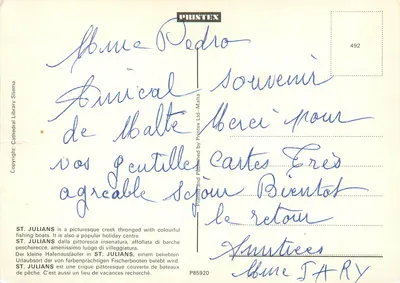 PRINTEX
492
Mme Pedro
Amical souvenir
de Malte Merci pour
vos gentilles cartes Très
agreable séjour Bientot
le retour
Amitiées
Mme JARY
Copyright: Cathedral Library Sliema
Printed by Printex Ltd - Malta
ST. JULIANS is a picturesque creek thronged with colourful
fishing boats. It is also a popular holiday centre.
ST. JULIANS dalla pittoresca insenatura, affollata di barche
pescherecce. amenissimo luogo di villeggiatura.
Der kleine Hafenausläufer in ST. JULIANS, einem beliebten
Urlaubsort der von farbenprächtigen Fischerbooten belebt wird.
ST. JULIANS est une crique pittoresque couverte de bateaux
de pêche. C'est aussi un lieu de vacances recherché.
P85920